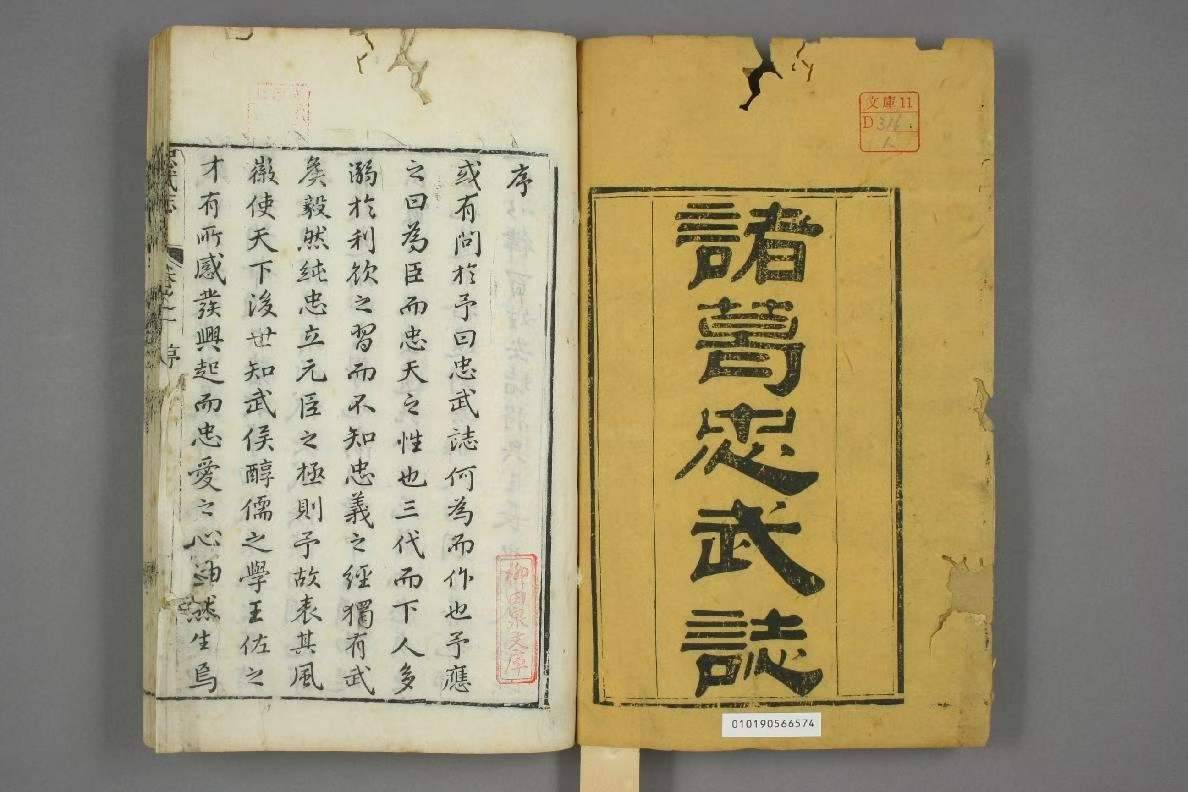 諸葛忠武誌
文庫11
D316
010190566574
序
或有問於予曰忠武誌何為而作也予應
之曰為臣而忠天之性也三代而下人多
溺於利欲之習而不知忠義之經獨有武
矦毅然純忠立元臣之極則予故表其風
徽使天下後世知武侯醇儒之學王佐之
才有所感發興起而忠愛之心油然生焉
柳田泉文庫
忠武誌
卷之一
序